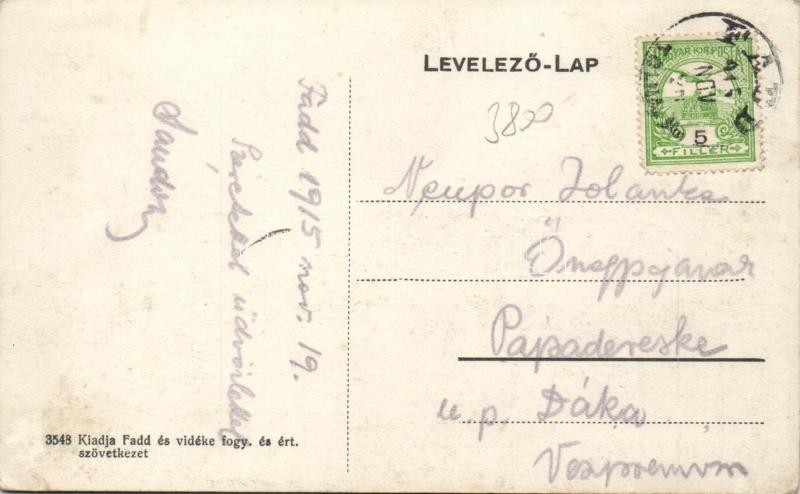 LEVELEZŐ-LAP
3800
MAGYAR KIR. POSTA
NOV
5
FILLÉR
Fadd 1915 nov. 19.
üdvözlettel
Sándor
Neupor Jolánka
Őnagysága
Pápadereske
u. p. Dáka
Veszprém m
3548 Kiadja Fadd és vidéke fogy. és ért.
szövetkezet